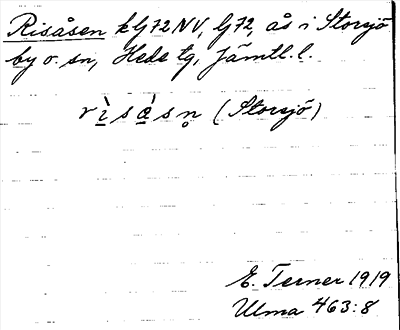 Risåsen kG72NV, G72, ås i Storsjö
by o. sn, Hede tg, Jämtl. l.
rı̀såsn̥ (Storsjö)
E. Terner 1919
Ulma 463:8